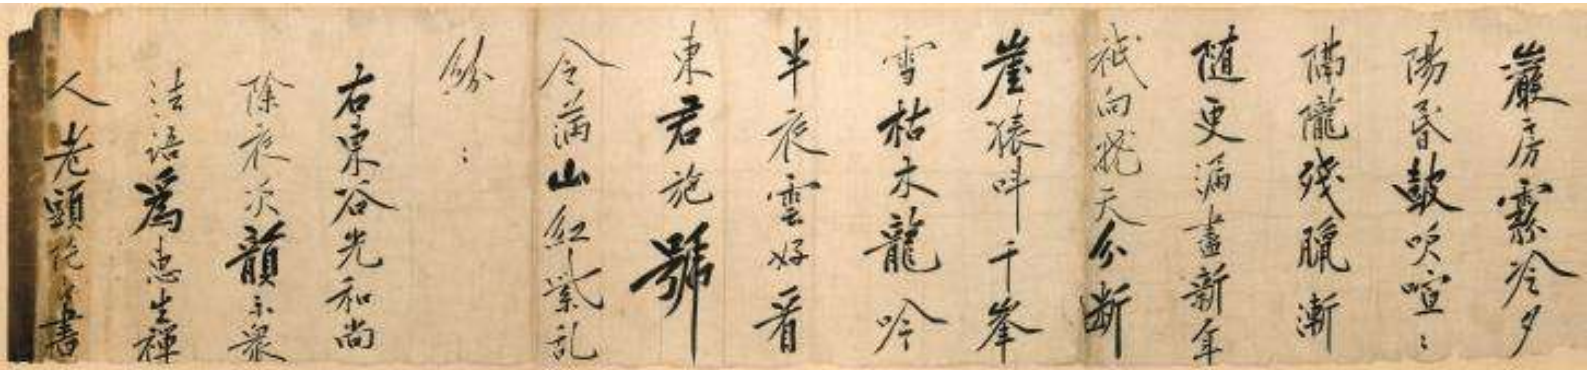 巖房霧冷夕
陽昏鼓吹喧〻
隔隴殘臘漸
随更漏盡新年
秖向曉天分断
崖猿叫千峯
雪枯木龍吟
半夜雲好看
東君施號
令滿山紅紫乱
紛〻
右東谷光和尚
除夜次韻示衆
法語爲惠生禅
人老顕書